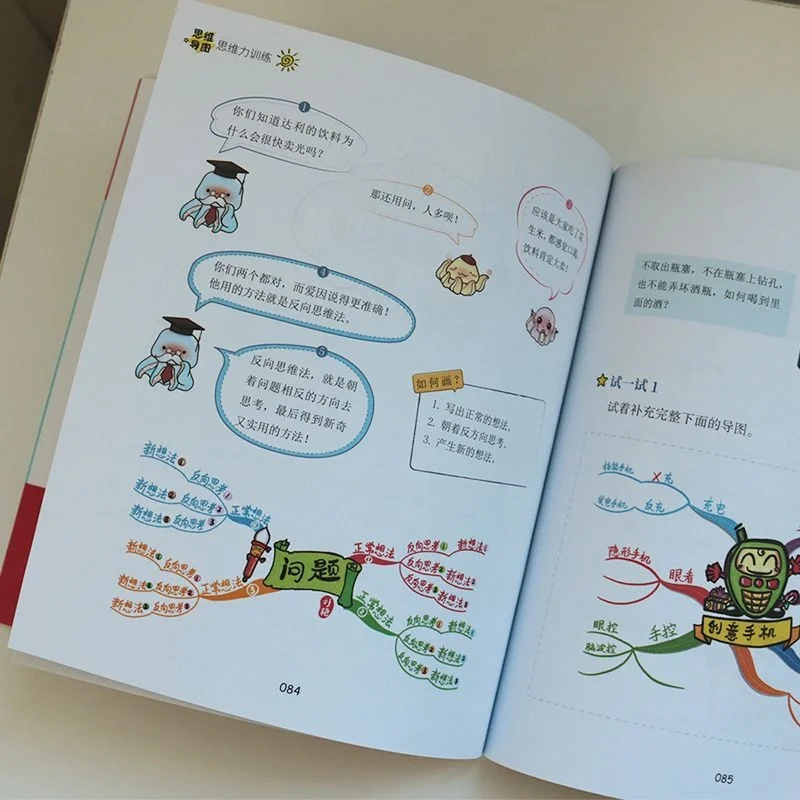 思维
导图
思维力训练
1
你们知道达利的饮料为
什么会很快卖光吗？
2
那还用问，人多呗！
3
应该是大家吃了花
生米，都感觉口渴，
饮料肯定大卖！
4
你们两个都对，而爱因说得更准确！
他用的方法就是反向思维法。
5
反向思维法，就是朝
着问题相反的方向去
思考，最后得到新奇
又实用的方法！
如何画？
1. 写出正常的想法。
2. 朝着反方向思考。
3. 产生新的想法。
新想法1 反向思考1
新想法2 反向思考2
新想法3 反向思考3
正常想法
新想法1 反向思考1
新想法2 反向思考2
新想法3 反向思考3
正常想法
问题
正常想法
反向思考1 新想法1
反向思考2 新想法2
反向思考3 新想法3
正常想法
反向思考1 新想法1
反向思考2 新想法2
反向思考3 新想法3
084
不取出瓶塞，不在瓶塞上钻孔，
也不能弄坏酒瓶，如何喝到里
面的酒？
试一试1
试着补充完整下面的导图。
充
发电手机 反充
充电
隐形手机
眼看
眼控
脑波控
手控
创意手机
085